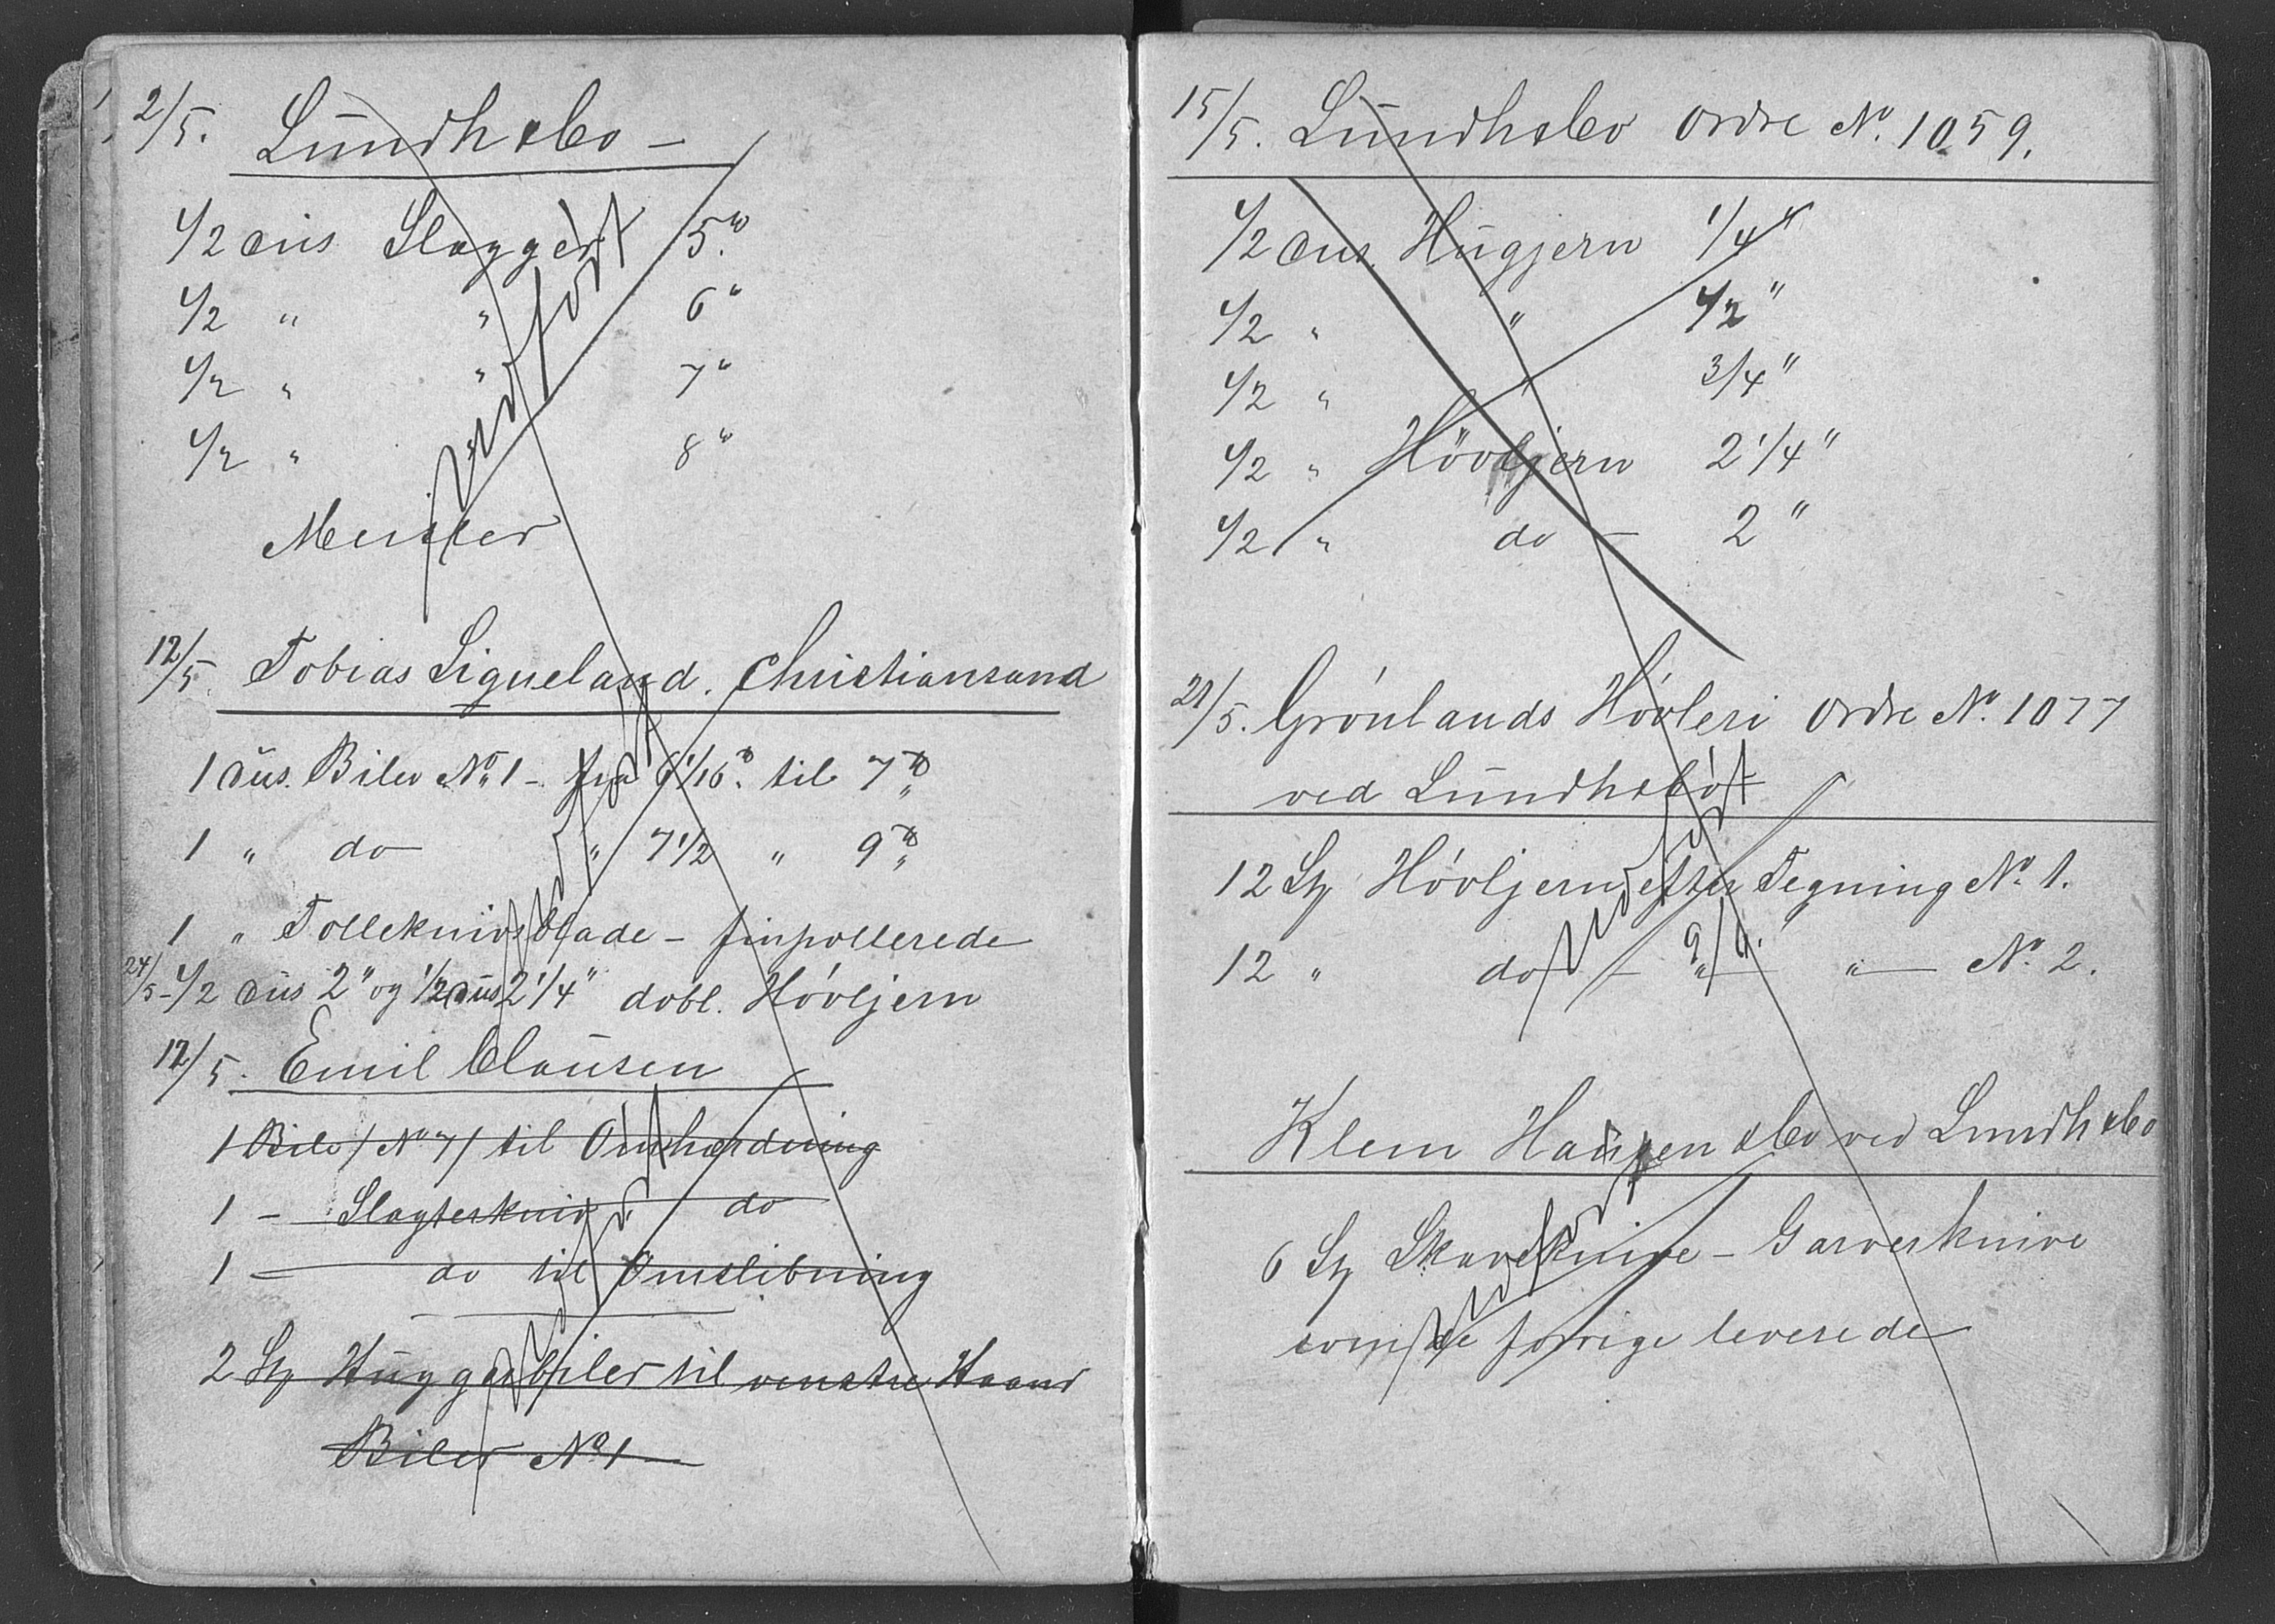 2/5. Lundh & Co –
1/2 dus Slaggert 5"
1/2 " " 6"
1/2 " " 7"
1/2 " " 8"
Meisler
udført
12/5. Tobias Ligneland. Christiansand
1 dus. Biler No 1 – fra 6 1/16 til 7
1 " do " 7 1/2 " 9
1 " Tolleknivsblade – finpollerede
24/5 – 1/2 dus 2" og 1/2 dus 2 1/4" dobl. Hövljern
udført
12/5. Emil Clausen
1 Bile / No 7 / til Omhærdning
1 – Slagterkniv do
1 – do til Omslibning
2 Stz Huggebiler til venstre Haand
Biler No 1
udført
15/5. Lundh & Co Ordre No. 1059.
1/2 dus. Hugjern 1/4"
1/2 " " 1/2"
1/2 " " 3/4"
1/2 " Hövljern 2 1/4"
1/2 " do – 2"
21/5. Grönlands Hövleri Ordre No. 1077
ved Lundh & Co
12 Stz Hövljern efter Tegning No. 1.
12 " do – " – " – No. 2.
udført 9/6.
Klem Hansen & Co ved Lundh & Co
6 Stz Skaveknive – Garverknive
som de forrige leverede
udført